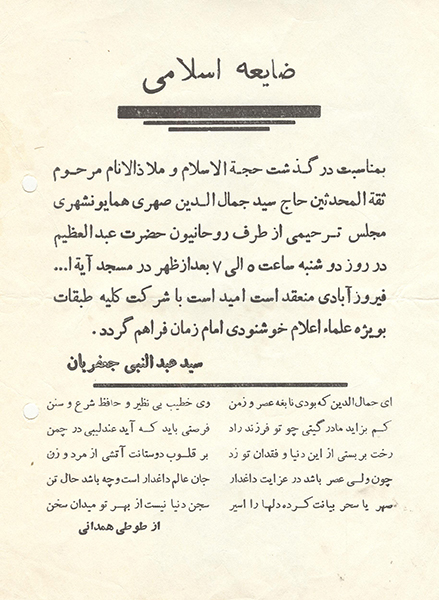 ضایعه اسلامی
بمناسبت درگذشت حجة الاسلام و ملاذالانام مرحوم
ثقة المحدثین حاج سید جمال الدین صهری همایونشهری
مجلس ترحیمی از طرف روحانیون حضرت عبدالعظیم
در روز دو شنبه ساعت ۵ الی ۷ بعدازظهر در مسجد آیة ا...
فیروزآبادی منعقد است امید است با شرکت کلیه طبقات
بویژه علماء اعلام خوشنودی امام زمان فراهم گردد.
سید عبدالنبی جعفریان
ای جمال الدین که بودی نابغه عصر و زمن وی خطیب بی نظیر و حافظ شرع و سنن
کم بزاید مادر گیتی چو تو فرزند راد فرصتی باید که آید عندلیبی در چمن
رخت بربستی از این دنیا و فقدان تو زد بر قلوب دوستانت آتشی از مرد و زن
چون ولی عصر باشد در عزایت داغدار جان عالم داغدار است وچه باشد حال تن
صهر یا سحر بیانت کرده دلها را اسیر سجن دنیا نیست از بهر تو میدان سخن
از طوطی همدانی